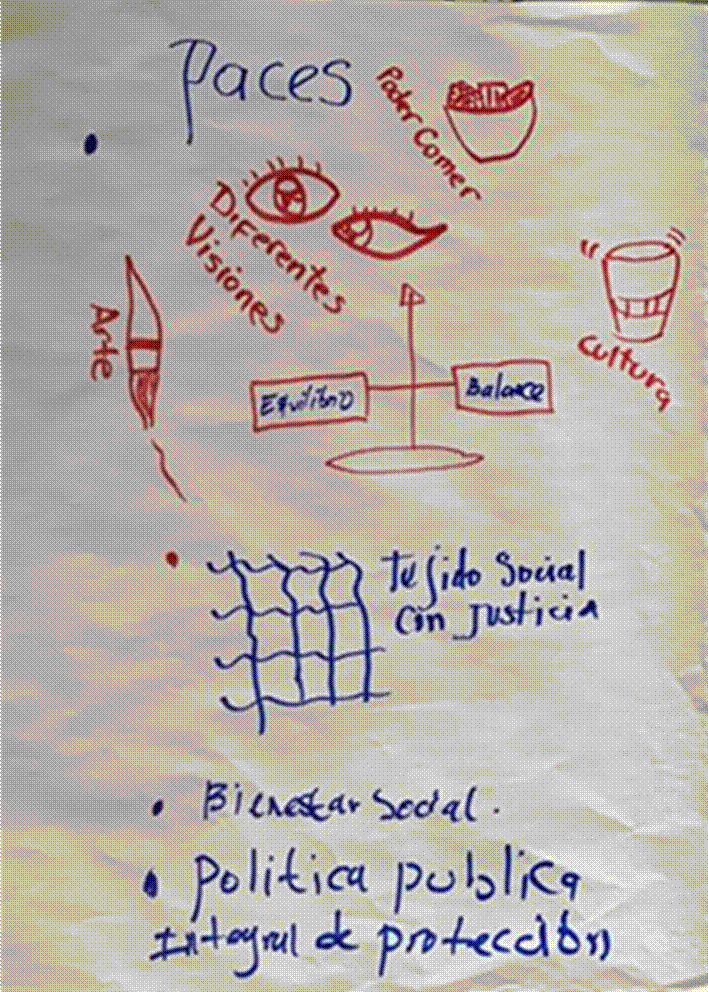 Paces
Poder Comer
Diferentes
Visiones
Arte
Cultura
Equilibrio
Balance
Tejido Social
Con Justicia
Bienestar Social.
Politica publica
Integral de protección